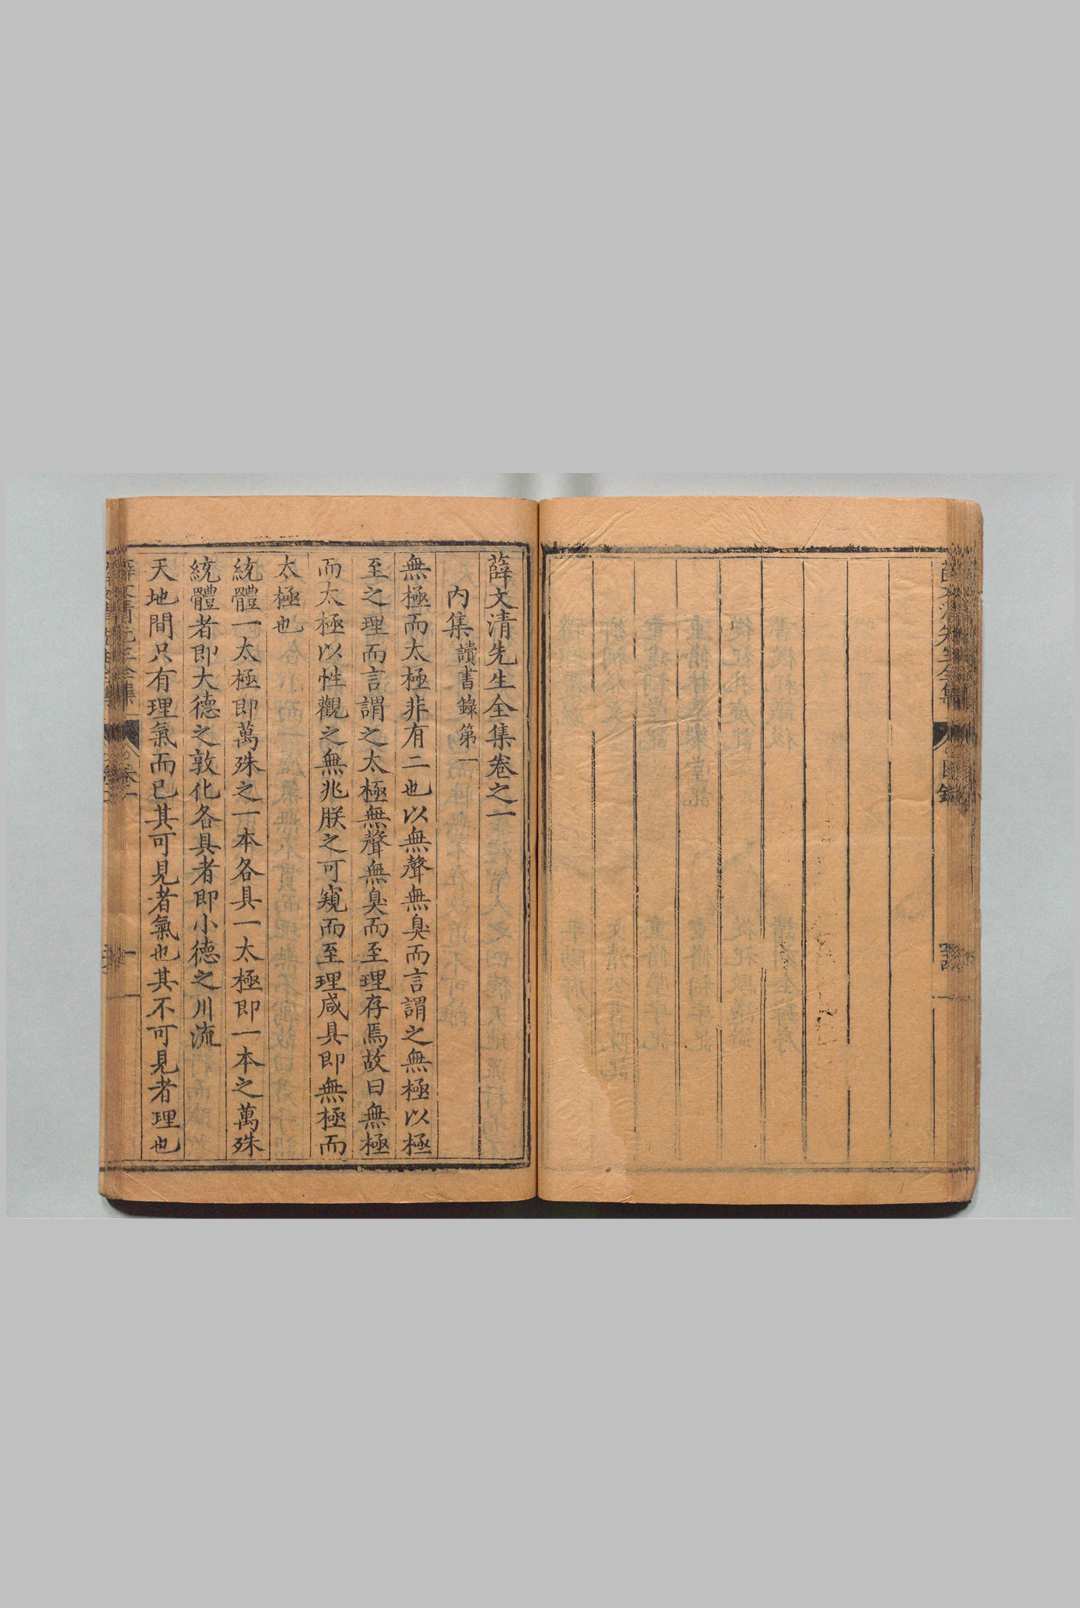 薛文清先生全集卷之一
內集讀書錄第一
無極而太極非有二也以無聲無臭而言謂之無極以極
至之理而言謂之太極無聲無臭而至理存焉故曰無極
而太極以性觀之無兆朕之可窺而至理咸具即無極而
太極也
統體一太極即萬殊之一本各具一太極即一本之萬殊
統體者即大德之敦化各具者即小德之川流
天地間只有理氣而已其可見者氣也其不可見者理也